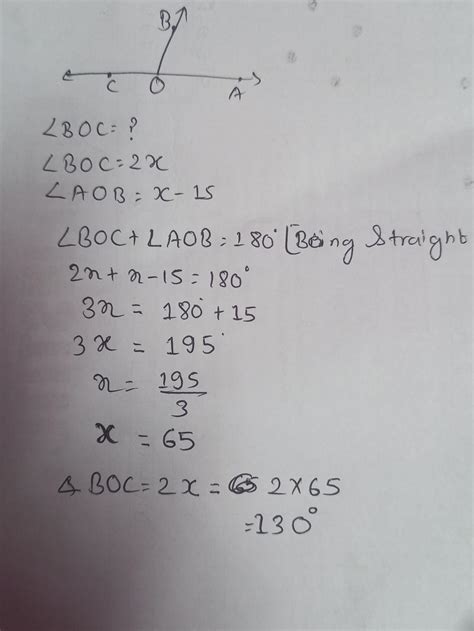 B
C O A
∠BOC = ?
∠BOC = 2x
∠AOB = x - 15
∠BOC + ∠AOB = 180° [Being Straight
2x + x - 15 = 180°
3x = 180° + 15
3x = 195°
x = 195/3
x = 65
∠BOC = 2x = 2 × 65
= 130°